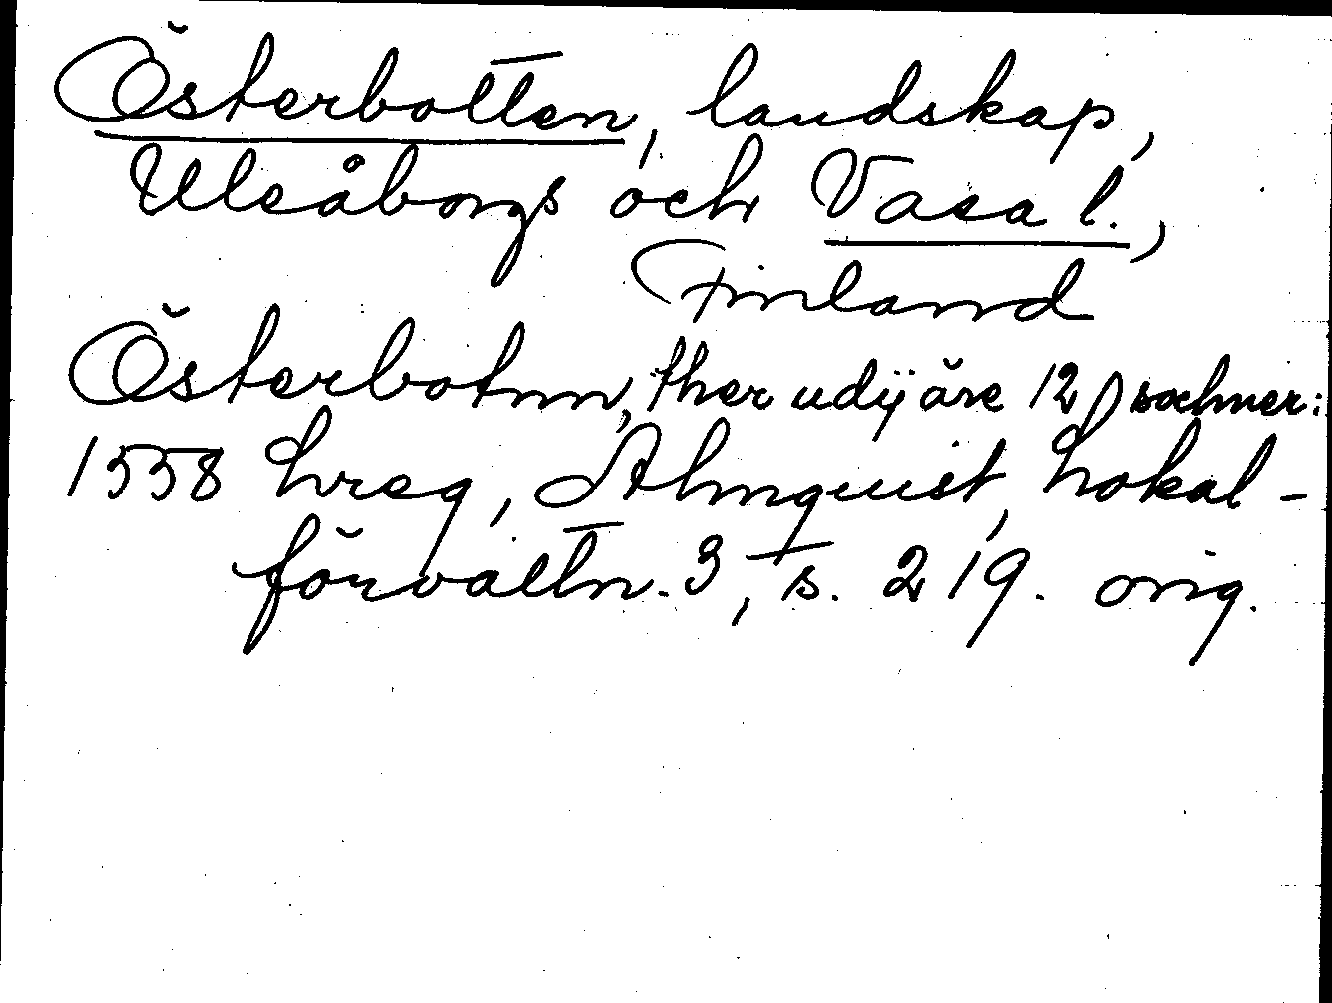 Österbotten, landskap,
Uleåborgs och Vasa l.,
Finland
Österbotnn, ther udij äre 12 sochner:
1558 Lreg, Almquist, Lokal-
förvaltn. 3, s. 219. orig.